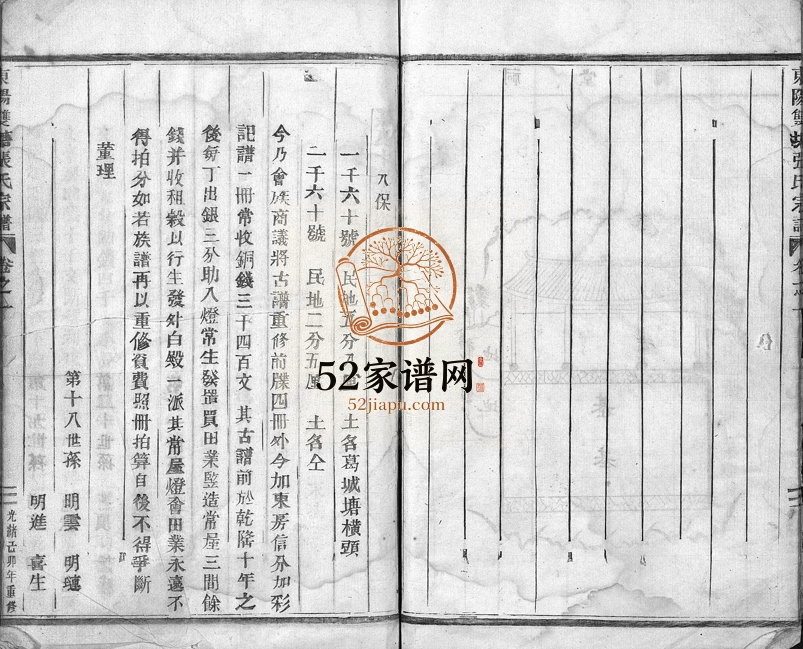 東陽雙塘張氏宗譜
八保
一千六十號 民地五分 土名葛城塘橫頭
二千六十號 民地二分五厘 土名仝
今乃會族商議將古譜重修前牒四冊外今加東房信分加彩
記譜一冊常收銅錢三十四百文 其古譜前於乾隆十年之
後每丁出銀三分助入燈常生發置買田業竪造常屋三間餘
錢并收租穀以行生發外白毀一派其常屋燈會田業永遠不
得拍分如若族譜再以重修資費照冊拍算自後不得爭斷
董理
第十八世孫 明雲 明璉
明進 喜生
東陽雙塘張氏宗譜 卷之一
光緒己卯年重修
52家谱网
52jiapu.com